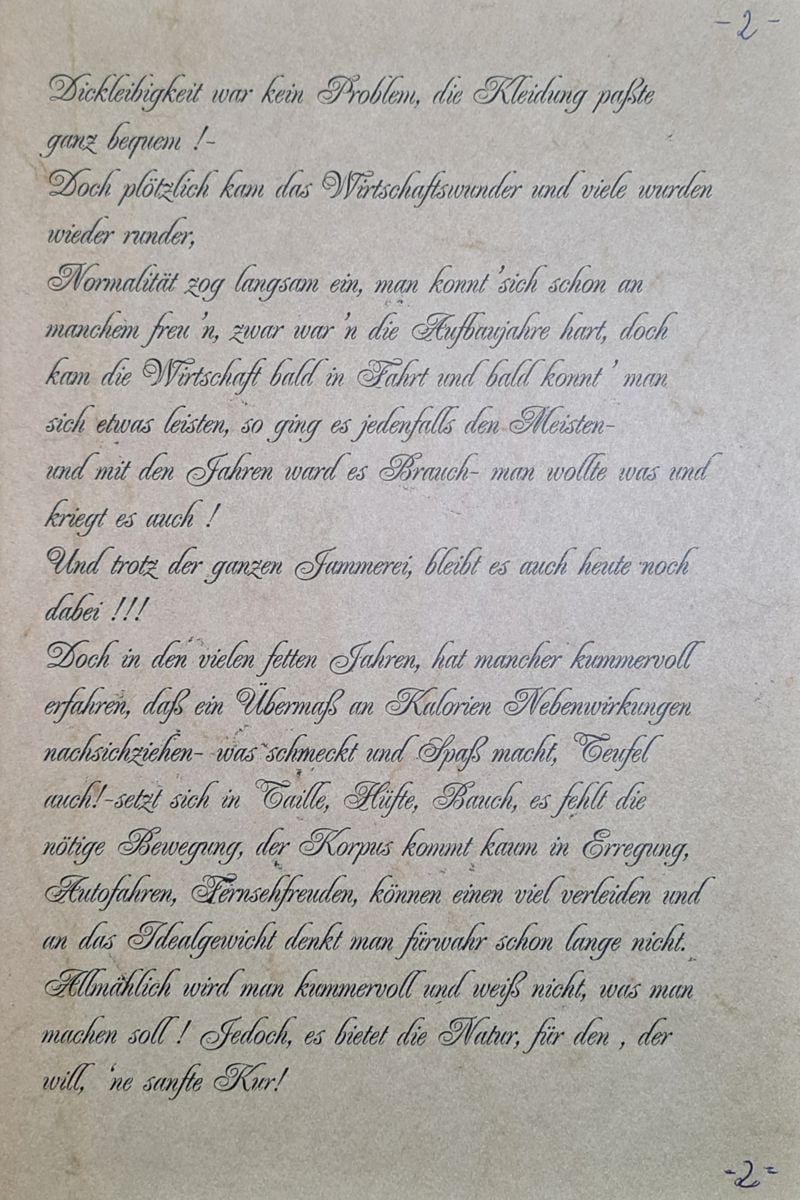 -2-
Dickleibigkeit war kein Problem, die Kleidung paßte
ganz bequem !-
Doch plötzlich kam das Wirtschaftswunder und viele wurden
wieder runder,
Normalität zog langsam ein, man konnt 'sich schon an
manchem freu 'n, zwar war 'n die Aufbaujahre hart, doch
kam die Wirtschaft bald in Fahrt und bald konnt ' man
sich etwas leisten, so ging es jedenfalls den Meisten-
und mit den Jahren ward es Brauch- man wollte was und
kriegt es auch !
Und trotz der ganzen Jammerei, bleibt es auch heute noch
dabei !!!
Doch in den vielen fetten Jahren, hat mancher kummervoll
erfahren, daß ein Übermaß an Kalorien Nebenwirkungen
nachsichziehen- was schmeckt und Spaß macht, Teufel
auch!-setzt sich in Taille, Hüfte, Bauch, es fehlt die
nötige Bewegung, der Korpus kommt kaum in Erregung,
Autofahren, Fernsehfreuden, können einen viel verleiden und
an das Idealgewicht denkt man fürwahr schon lange nicht.
Allmählich wird man kummervoll und weiß nicht, was man
machen soll ! Jedoch, es bietet die Natur, für den , der
will, 'ne sanfte Kur!
-2-